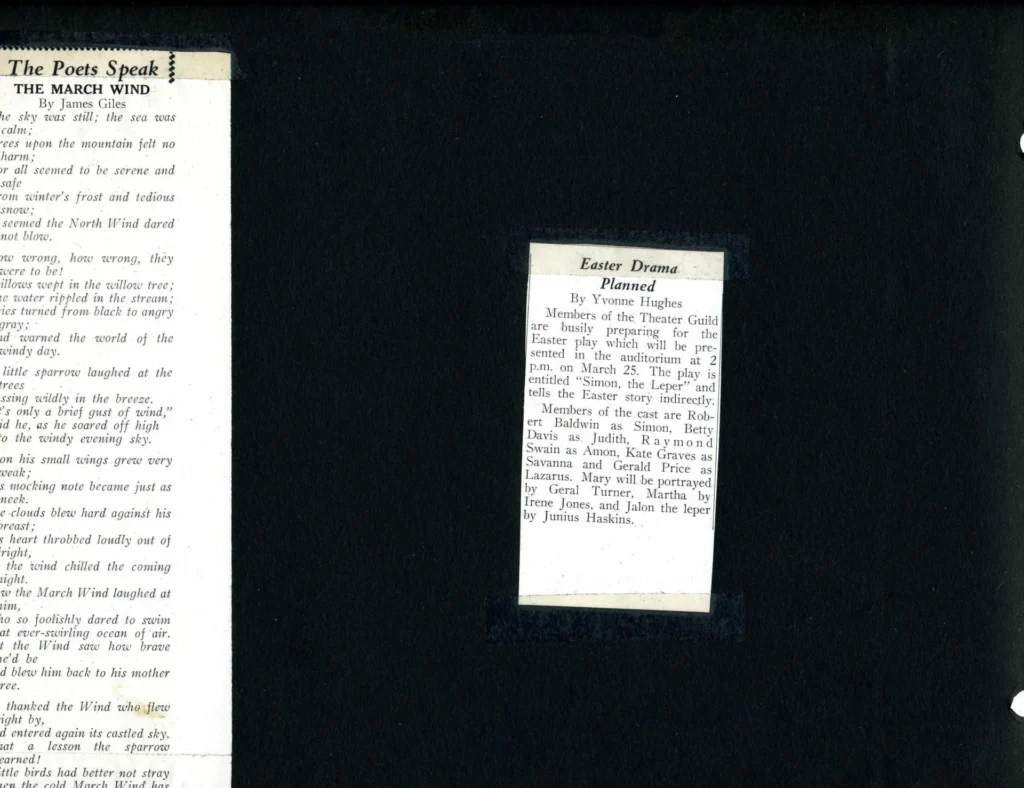 The Poets Speak
THE MARCH WIND
By James Giles
he sky was still; the sea was
calm;
rees upon the mountain felt no
harm;
or all seemed to be serene and
safe
rom winter's frost and tedious
snow;
seemed the North Wind dared
not blow.
ow wrong, how wrong, they
were to be!
illows wept in the willow tree;
e water rippled in the stream;
ies turned from black to angry
gray;
nd warned the world of the
windy day.
little sparrow laughed at the
trees
ssing wildly in the breeze.
t's only a brief gust of wind,"
id he, as he soared off high
to the windy evening sky.
on his small wings grew very
weak;
s mocking note became just as
meek.
e clouds blew hard against his
breast;
s heart throbbed loudly out of
fright,
the wind chilled the coming
night.
w the March Wind laughed at
him,
ho so foolishly dared to swim
at ever-swirling ocean of air.
t the Wind saw how brave
he'd be
d blew him back to his mother
tree.
thanked the Wind who flew
right by,
d entered again its castled sky.
hat a lesson the sparrow
learned!
ittle birds had better not stray
hen the cold March Wind has
Easter Drama
Planned
By Yvonne Hughes
Members of the Theater Guild
are busily preparing for the
Easter play which will be pre-
sented in the auditorium at 2
p.m. on March 25. The play is
entitled "Simon, the Leper" and
tells the Easter story indirectly.
Members of the cast are Rob-
ert Baldwin as Simon, Betty
Davis as Judith, Raymond
Swain as Amon, Kate Graves as
Savanna and Gerald Price as
Lazarus. Mary will be portrayed
by Geral Turner, Martha by
Irene Jones, and Jalon the leper
by Junius Haskins.